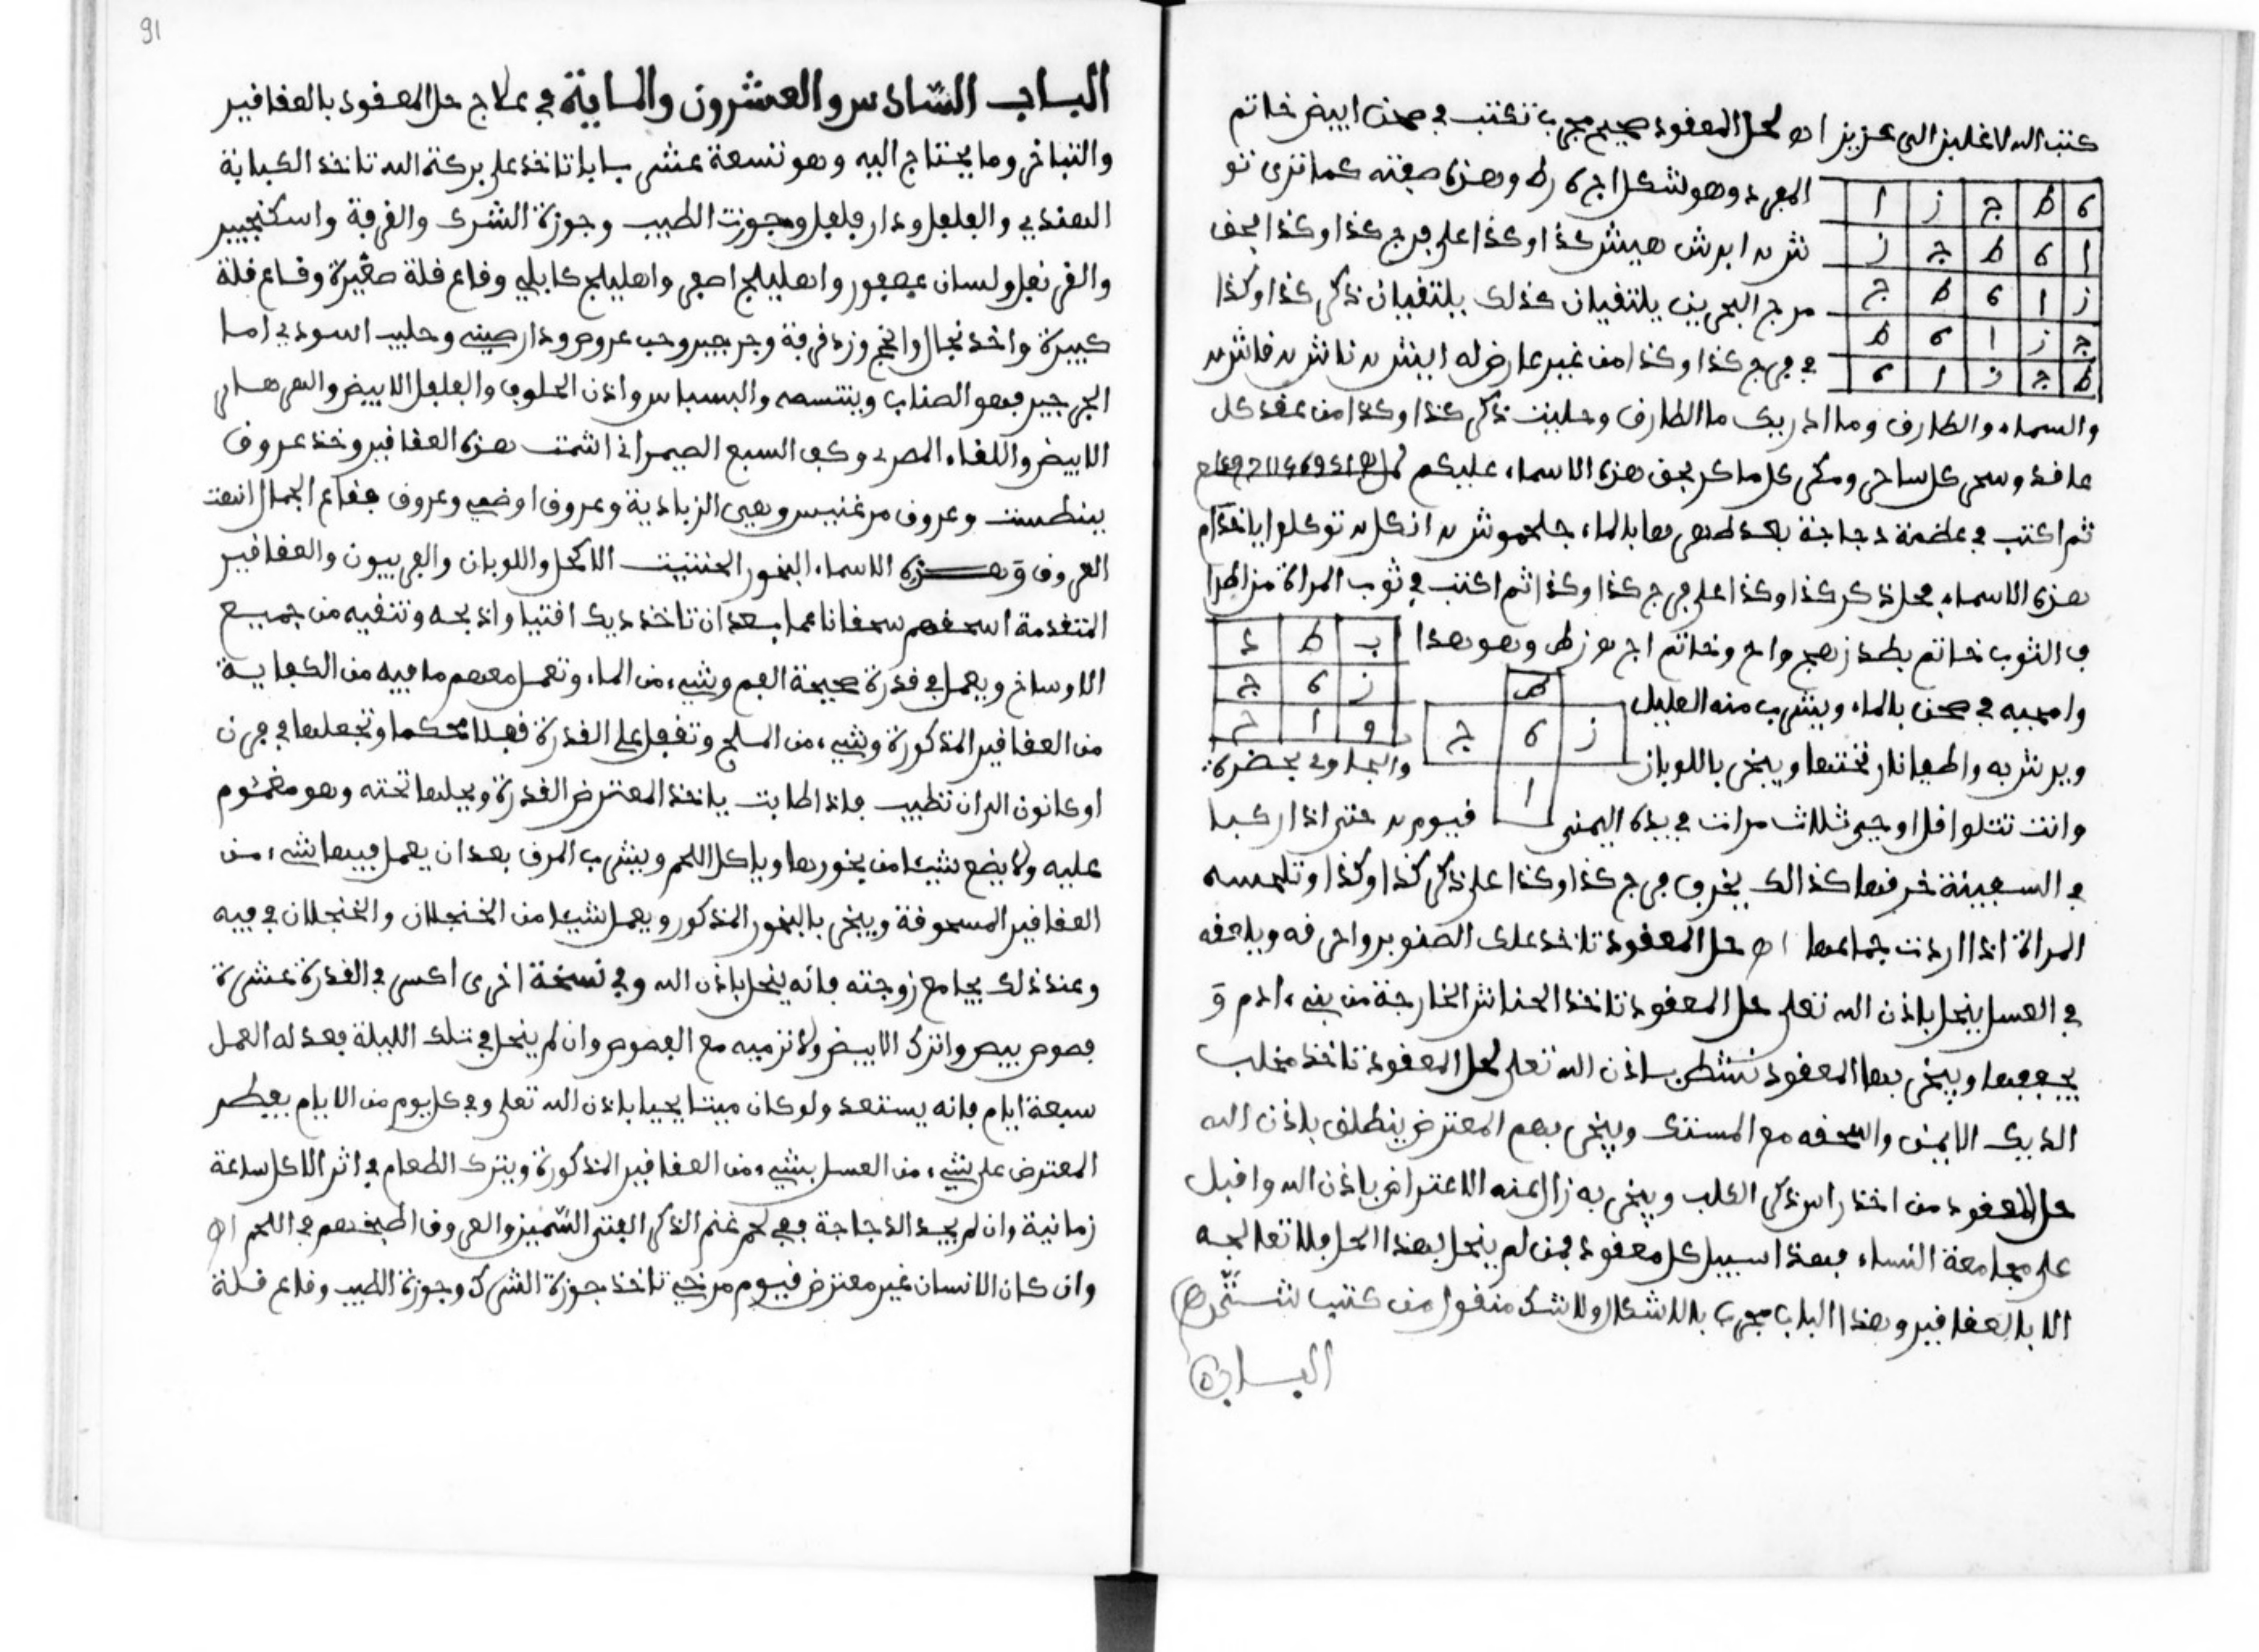 كتب الله لاغلبن الى عزيز اه لحل المعقود صحيح مجرب تكتب في صحن ابيض خاتم
المفرد وهو لشكل اج ه زط وهذه صفته كما ترى تو
ه ط ج ز ا
كذا وكذا على فرج كذا وكذا بحق
ا ه ط ج ز
مرج البحرين يلتقيان كذلك يلتقيان ذكر كذا وكذا
ز ا ه ط ج
في فرج كذا وكذا من غير عارض له
ج ز ا ه ط
ط ج ز ا ه
والسماء والطارق وما ادريك ما الطارق وحليت ذكر كذا وكذا من عقد كل
عاقد وسحر كل ساحر ومكر كل ماكر بحق هذه الاسماء عليكم
ثم اكتب في عظمة دجاجة بعد طهرها بالماء توكلوا ياخدام
هذه الاسماء بحل ذكر كذا وكذا على فرج كذا وكذا ثم اكتب في ثوب المراة
في الثوب خاتم بطد زهج واح وخاتم اج ه زط وهو هذا
ب ط د
ز ه ج
و ا ح
وامحيه في صحن بالماء ويشرب منه العليل
ط
ز ه ج
ا
ويبخر باللوبان
والجاوي بحضرة
وانت تتلوا قل اوحي ثلاث مرات في يده اليمنى
حتى اذا ركبا
في السفينة خرقها كذالك يخرق فرج كذا وكذا على ذكر كذا وكذا وتلمسه
المراة اذا اردت جماعها اه حل المعقود تاخذ علك الصنوبر واحرقه ويلعقه
في العسل ينحل باذن الله تعلى حل المعقود تاخذ الخارجة من بني ادم و
يجففها ويبخر بها المعقود باذن الله تعلى لحل المعقود تاخذ مخلب
الديك الايمن واسحقه مع المستك ويبخر بهم المعترض ينطلق باذن الله
حل المعقود من اخذ راس ذكر الكلب ويبخر به زال عنه الاعتراض باذن الله واقبل
على مجامعة النساء فهذا سبيل كل معقود فمن لم ينحل بهذا الحل فلا تعالجه
الا بالعقاقير وهذا الباب مجرب بلا اشكال ولا شك منقول من كتب
الباب
91
الباب السادس والعشرون والماية في علاج حل المعقود بالعقاقير
والتباخر وما يحتاج اليه وهو تسعة عشر بابا تاخذ على بركة الله تاخذ الكبابة
الهندي والفلفل ودار فلفل وجوزت الطيب وجوزة الشرك والقرفة واسكنجبير
والقرنفل ولسان عصفور واهليلج اصفر واهليلج كابلي وقاع قلة صغيرة وقاع قلة
كبيرة وخدنجال وزد قرفة وجرجير وحب عروص ودار صيني وحليب السودي اما
الجرجير فهو الصناب وبنتسمه والبسباس واذن الحلوف والفلفل الابيض
الابيض واللفاء المصري وكف السبع الصحراني اتمت هذه العقاقير وخذ عروق
بنطست وعروق مرغنيس وهي الزبادية وعروق اوضمي وعروق فقاع الجمال انتهت
العروق وهذه الاسماء البخور الحنتيت الاكحل واللوبان والفربيون والعقاقير
المتقدمة اسحقهم سحقا ناعما بعد ان تاخذ ديك افتيا واذبحه وتنقيه من جميع
الاوساخ ويعمل في قدرة صحيحة الفم وشيء من الماء وتعمل معهم ما فيه من الكفاية
من العقاقير المذكورة وشيء من الملح وتقفل على القدرة قفلا محكما وتجعلها في فرن
او كانون الى ان تطيب فاذا طابت ياخذ المعترض القدرة ويجلها تحته وهو مغموم
عليه ولا يضع شيئا من بخورها وياكل اللحم ويشرب المرق بعد ان يعمل فيها شيء من
العقاقير المسحوقة ويبخر بالبخور المذكور ويعمل شيئا من الخنجلان والخنجلان في فيه
وعند ذلك يجامع زوجته فانه ينحل باذن الله وفي نسخة اخرى اكسر في القدرة عشرة
فصوص بيض واترك الابيض ولا ترميه مع الفصوص وان لم ينحل في تلك الليلة فعد له العمل
سبعة ايام فانه يستعد ولو كان ميتا يحيا باذن الله تعلى وفي كل يوم من الايام يفطر
المعترض على شيء من العسل بشيء من العقاقير المذكورة ويترك الطعام في اثر الاكل ساعة
زمانية وان لم يجد الدجاجة ففي لحم غنم الذكر الفتي السميز والعروق اطبخهم في اللحم اه
وان كان الانسان غير معترض فيوم مرخي تاخذ جوزة الشرك وجوزة الطيب وقاع قلة